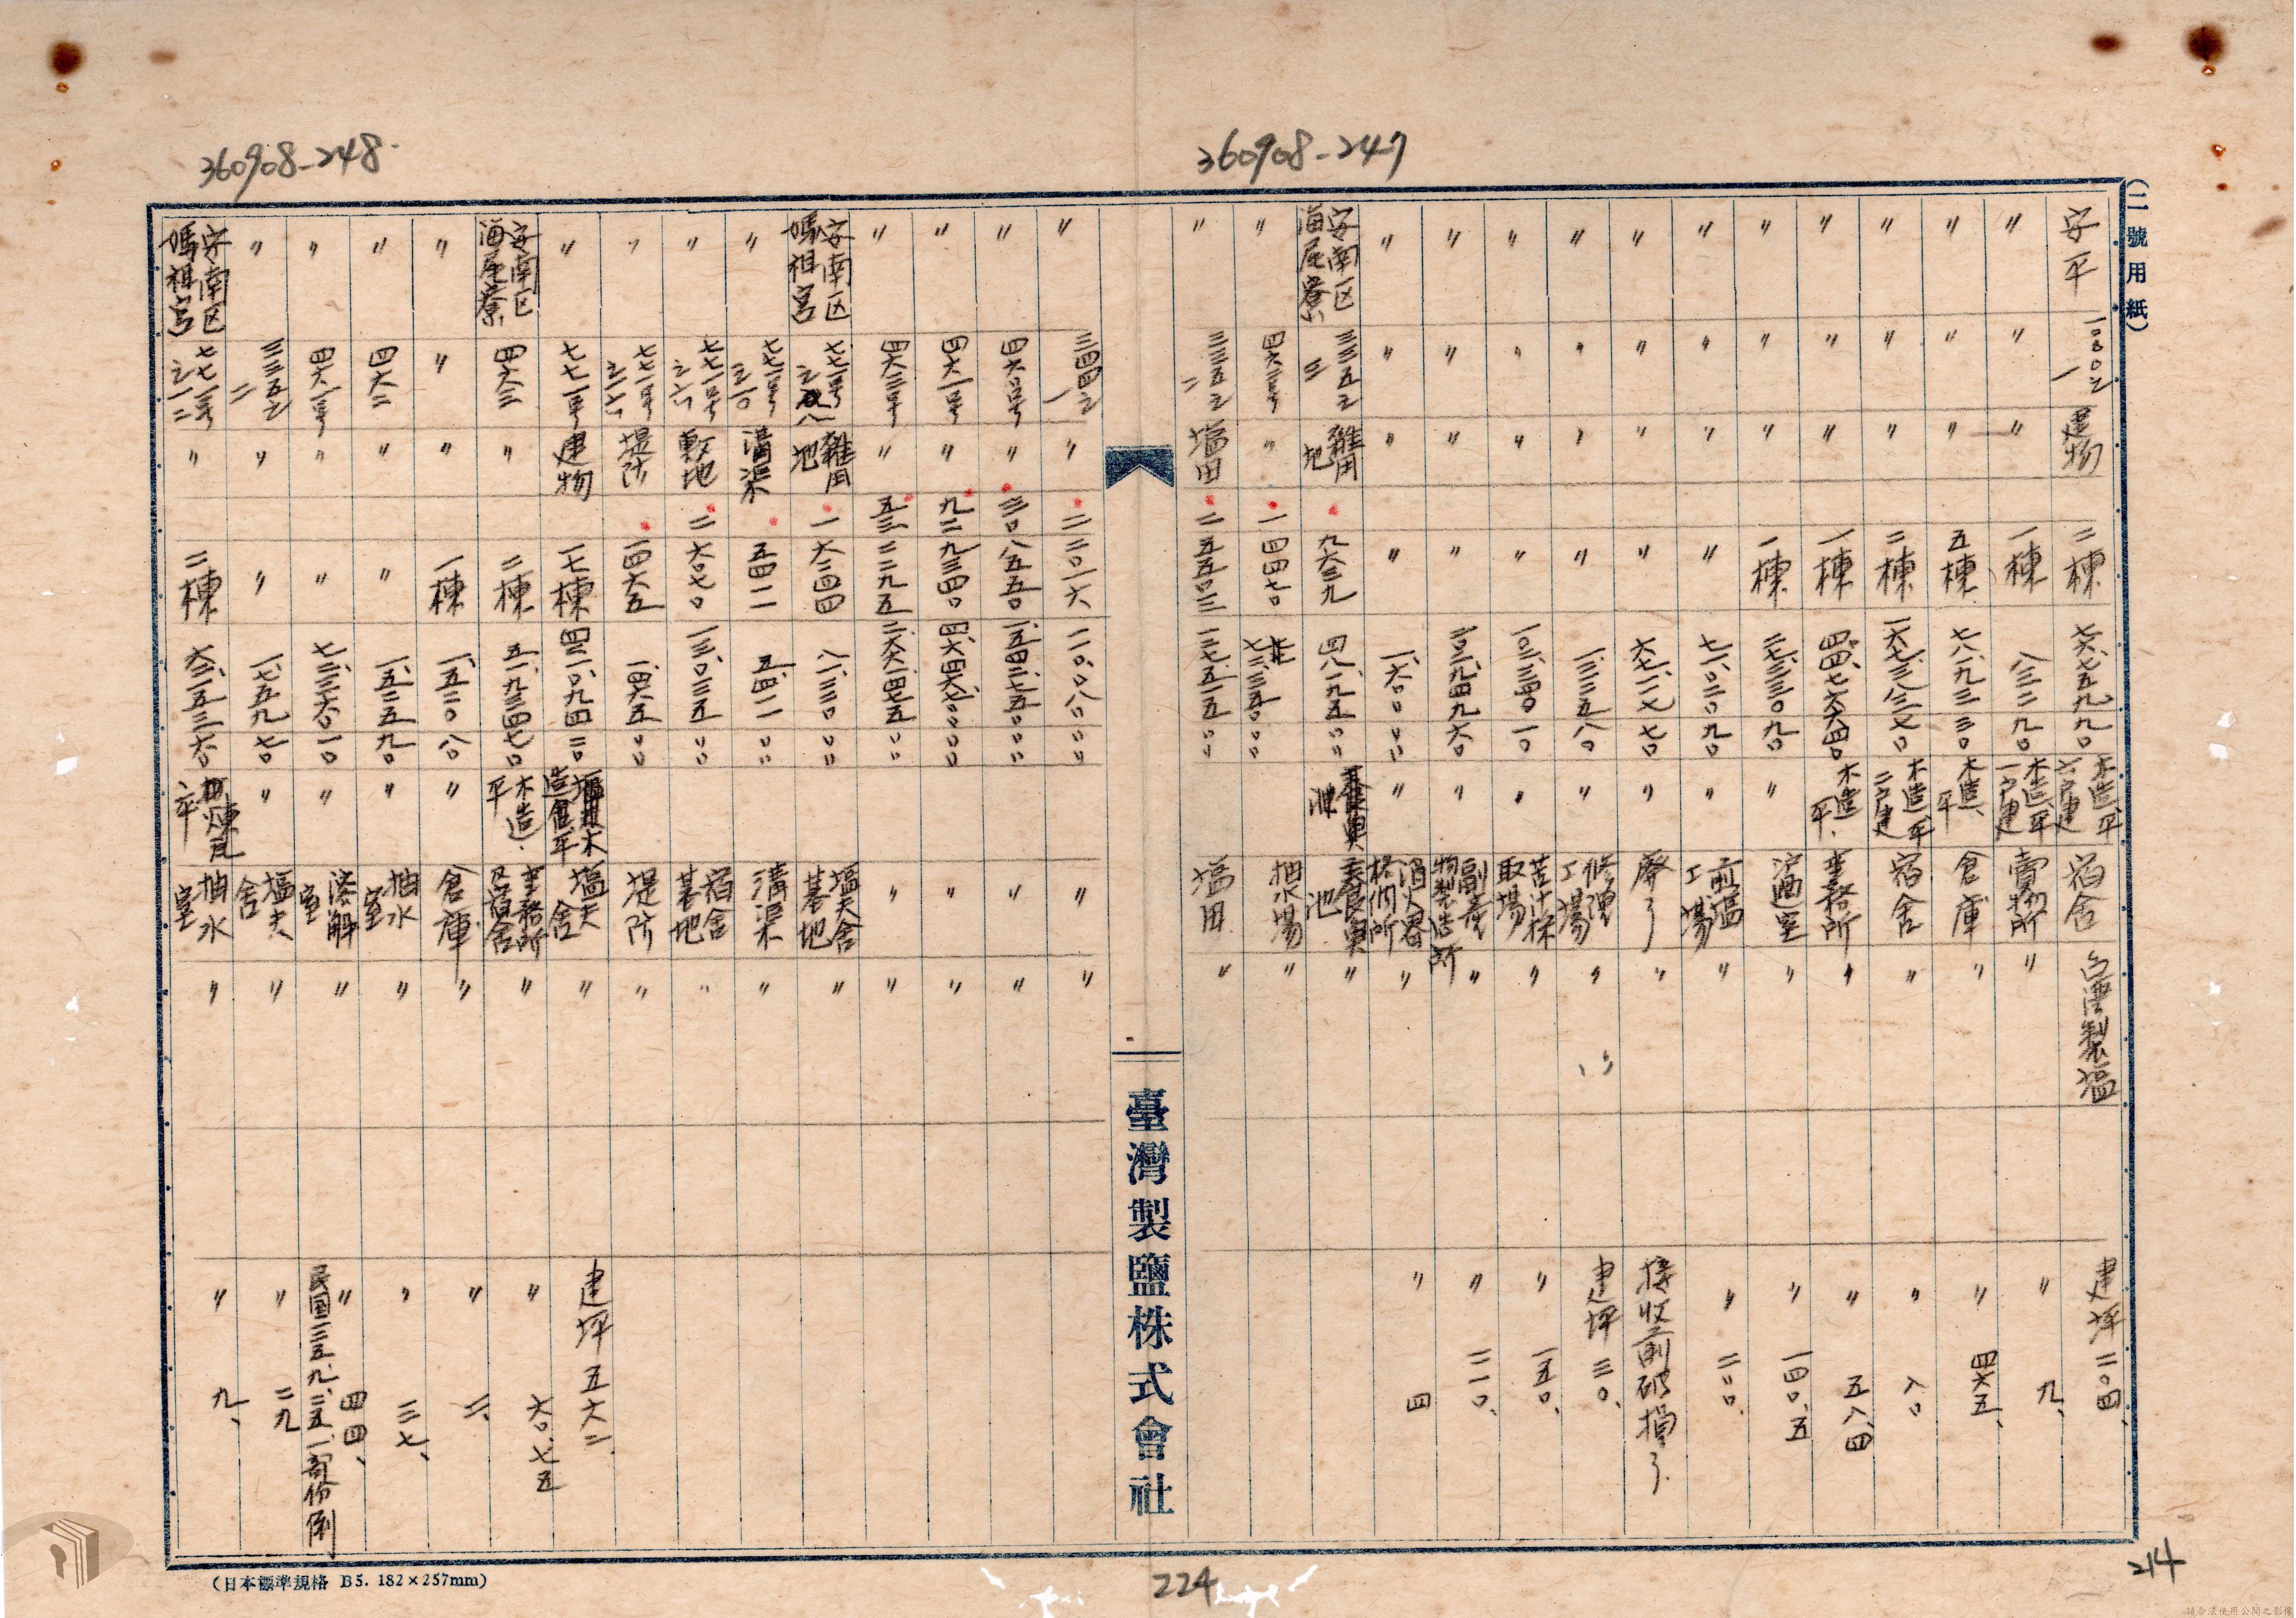 360908-248
360908-247
(二號用紙)
安平 一〇〇之一 建物 二棟 七六、七五九九〇 木造平六戸建 宿舎 台湾製塩 建坪 二〇四、
〃 〃 〃 一棟 八三二九〇 木造平一戸建 賣物所 〃 〃 九、
〃 〃 〃 五棟 七八、九三三〇 木造、平 倉庫 〃 〃 四六五、
〃 〃 〃 二棟 一六七、三八二七〇 木造平二戸建 宿舎 〃 〃 八〇
〃 〃 〃 一棟 四四、七六六四〇 木造、平 事務所 〃 〃 五八、四
〃 〃 〃 一棟 三七、三三〇九〇 〃 〃 〃 一四〇、五
〃 〃 〃 〃 七一、〇二〇九〇 〃 煎塩工場 〃 〃 二〇〇、
〃 〃 〃 〃 六七、二一七七〇 〃 廢了 〃 接收前破損了
〃 〃 〃 〃 一、三三五八〇 〃 修理工場 〃 建坪 三〇、
〃 〃 〃 〃 一〇三、三四〇一〇 〃 苦汁採取場 〃 〃 一五〇、
〃 〃 〃 〃 三〇二、九四九六〇 〃 副産物製造所 〃 〃 二一〇、
〃 〃 〃 〃 一、六〇〇〃〃 〃 消火器格納所 〃 〃 四
安南区海尾寮 三三五之三 雑用地 九六三九 四八、一九五〃〃 養魚池 〃
〃 四六二号 〃 一四四七〇 七二、三五〇〃〃 抽水場 〃
〃 三三五之二 塩田 二五五〇三 一二七、五一五〃〃 塩田 〃
臺灣製鹽株式會社
〃 三四四之一 〃 二二〇一六 一一〇、〇八〇〃〃 〃 〃
〃 四六〇号 〃 三〇八五五〇 一、五四二、七五〇〃〃 〃 〃
〃 四六一号 〃 九二九三四〇 四、六四六、七〇〇〃〃 〃 〃
〃 四六三号 〃 五三三二九五 二、六六六、四七五〃〃 〃 〃
安南区媽祖宮 七七一号之八 雑用地 一六二四四 八一、二二〇〃〃 塩夫舎基地 〃
〃 七七一号之一〇 溝渠 五四一一 五、四一一〃〃 溝渠 〃
〃 七七一号之一六 敷地 二六〇七〇 一三〇、三五〇〃〃 宿舎基地 〃
〃 七七一号之一六 堤防 一四六五 一、四六五〃〃 堤防 〃
〃 七七一号 建物 一七棟 四二一、〇九四二〇 塩夫舎 〃 建坪 五六二、
安南区海尾寮 四六二 〃 二棟 五一、九三四七〇 木造、平 事務所及宿舎 〃 〃 六〇、七五
〃 〃 〃 一棟 一、五二〇八〇 〃 倉庫 〃 〃 二、
〃 四六二 〃 〃 一、五二五九〇 〃 抽水室 〃 〃 三七、
〃 四六一号 〃 〃 七二、三六〇一〇 〃 溶解室 〃 〃 四四、
民国三五、九、二五、一部份倒
〃 三三五之二 〃 〃 一、七五九七〇 〃 塩夫舎 〃 〃 二九
安南区媽祖宮 七七一号之一二 〃 二棟 六二、一五三六〇 煉瓦、平 抽水室 〃 〃 九、
(日本標準規格 B5. 182×257mm)
224
214
請合法使用公開之影像